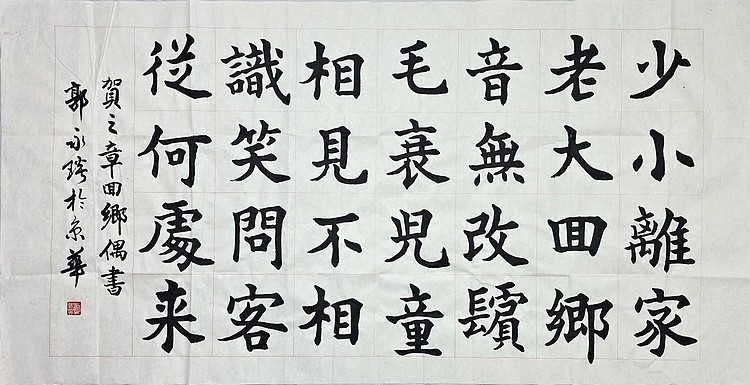 少小離家
老大回鄉
音無改鬢
毛衰兒童
相見不相
識笑問客
從何處来
賀之章回鄉偶書
郭永琦於京華